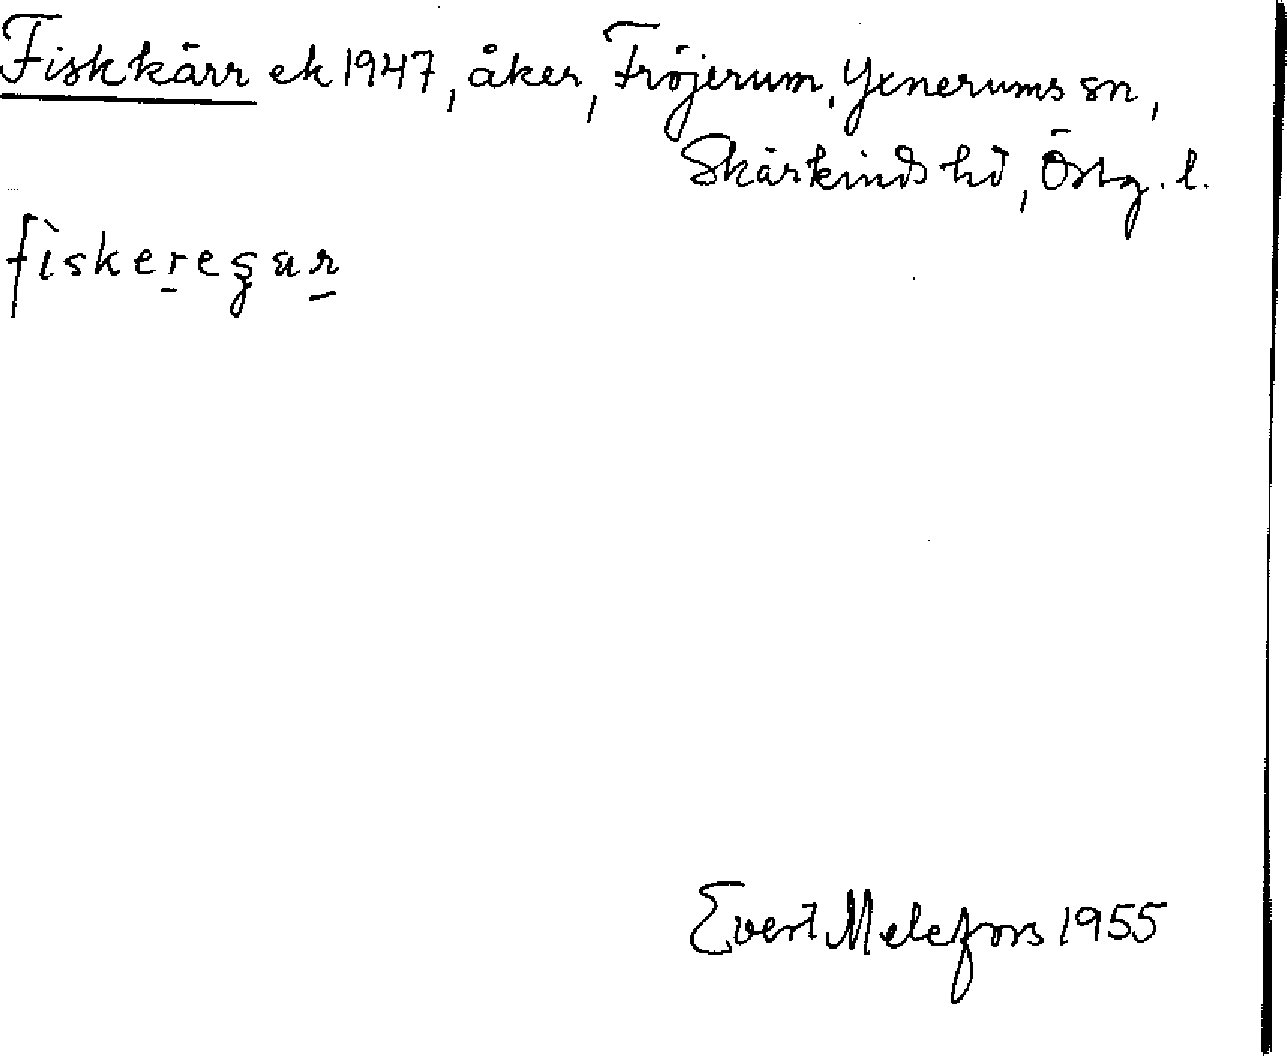 Fiskkärr ek 1947, åker, Fröjerum, Yxnerums sn,
Skärkinds hd, Östg. l.
Evert Melefors 1955